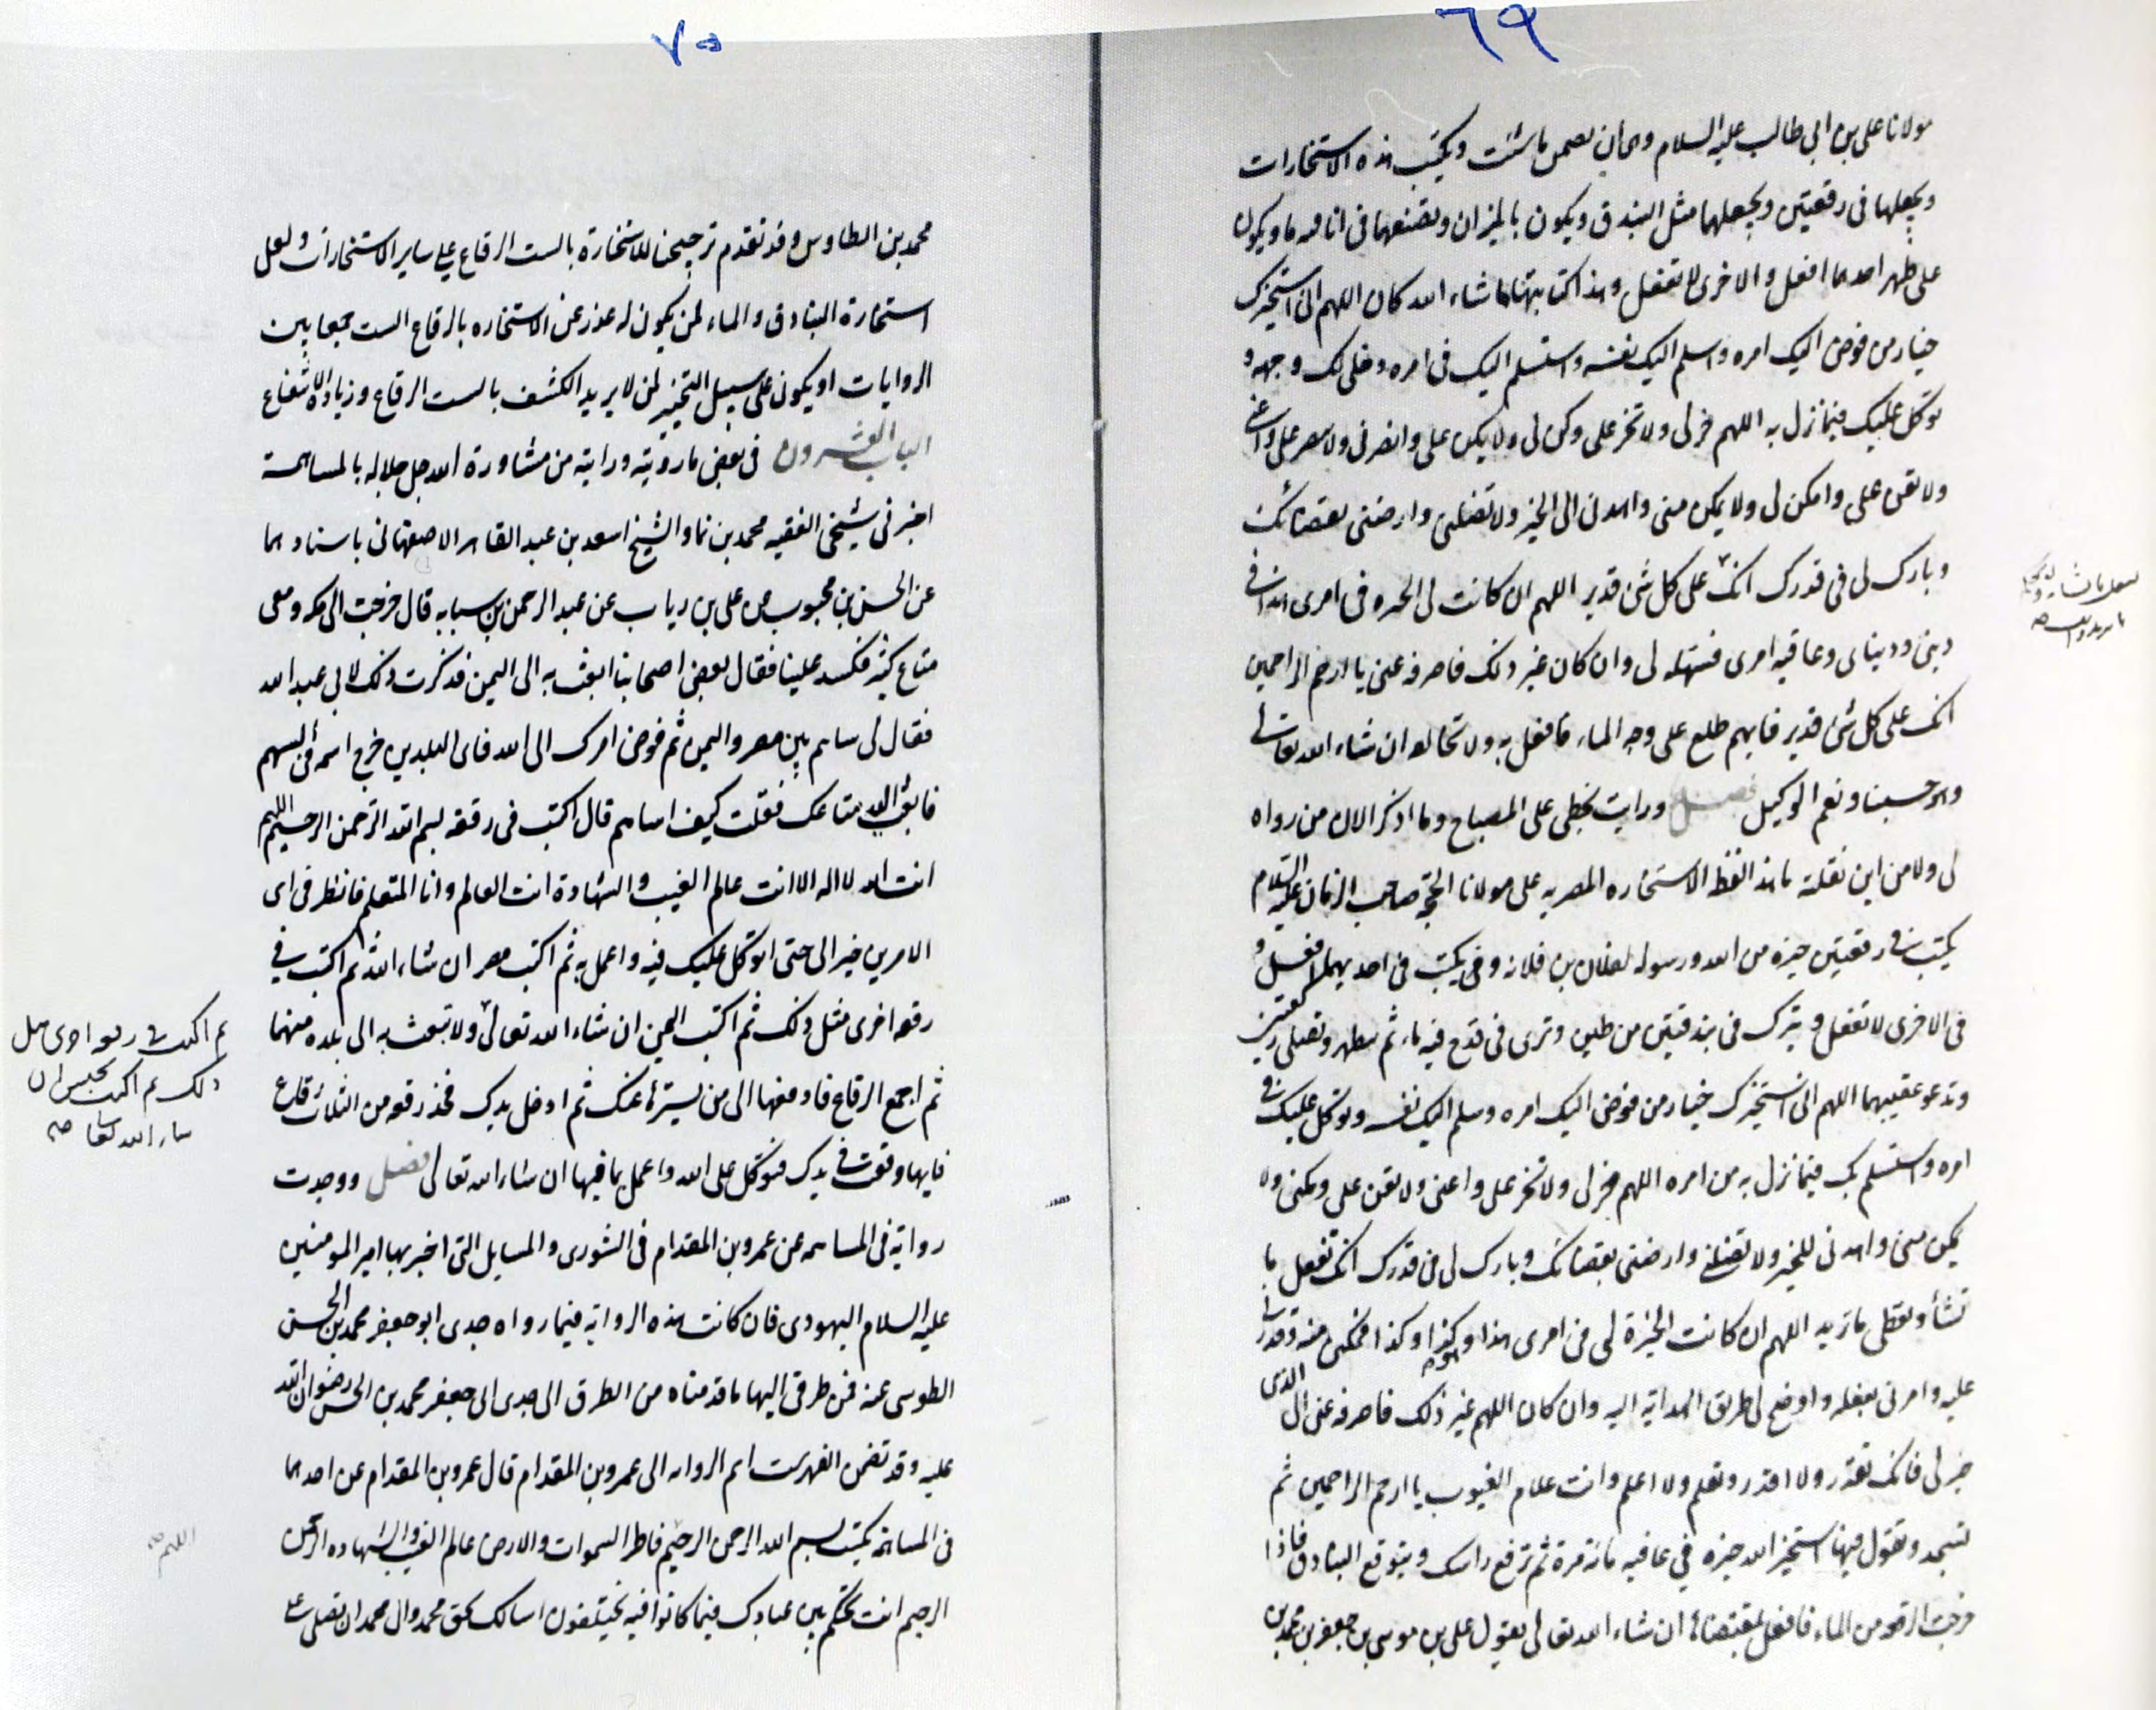 ٦٩
مولانا على بن ابى طالب عليه السلام وهى ان تضمر ما شئت وتكتب هذه الاستخارات
وتجعلها فى رقعتين وتجعلهما مثل البندق ويكون بالميزان وتضعهما فى اناء فيه ماء ويكون
على ظهر احدهما افعل والاخرى لا تفعل وهذا كتابتها ما شاء الله كان اللهم انى استخيرك
خيار من فوض اليك امره واسلم اليك نفسه واستسلم اليك فى امره وخلى لك وجهه و
توكل عليك فيما نزل به اللهم خر لى ولا تخر على وكن لى ولا تكن على وانصرنى ولا تنصر على واعنى
ولا تعن على وامكن لى ولا تمكن منى واهدنى الى الخير ولا تضلنى وارضنى بقضائك
وبارك لى فى قدرك انك على كل شئ قدير اللهم ان كانت لى الخيره فى امرى هذا فى
دينى ودنياى وعاقبه امرى فسهله لى وان كان غير ذلك فاصرفه عنى يا ارحم الراحمين
انك على كل شئ قدير فايهم طلع على وجه الماء فافعل به ولا تخالفه ان شاء الله تعالى
وهو حسبنا ونعم الوكيل فصل ورايت بخطى على المصباح وما اذكر الان من رواه
لى ولا من اين نقلته ما هذا لفظ الاستخاره المصريه على مولانا الحجة صاحب الزمان عليه السلام
يكتب فى رقعتين خيرة من الله ورسوله لفلان بن فلانه وفى يكتب فى احديهما افعل و
فى الاخرى لا تفعل ويترك فى بندقتين من طين وترى فى قدح فيه ماء ثم تطهر وتصلى ركعتين
وتدعو عقيبهما اللهم انى استخيرك خيار من فوض اليك امره وسلم اليك نفسه وتوكل عليك فى
امره واستسلم بك فيما نزل به من امره اللهم خر لى ولا تخر على واعنى ولا تعن على ومكنى ولا
تمكن منى واهدنى للخير ولا تضلنى وارضنى بقضائك وبارك لى فى قدرك انك تفعل ما
تشأ وتعطى ما تريد اللهم ان كانت الخيرة لى فى امرى هذا وهو كذا وكذا فمكنى منه وقدرنى
عليه وامرنى بفعله واوضح لى طريق الهداية اليه وان كان اللهم غير ذلك فاصرفه عنى الى الذى
خير لى فانك تقدر ولا اقدر وتعلم ولا اعلم وانت علام الغيوب يا ارحم الراحمين ثم
تسجد وتقول فيها استخير الله خيره فى عافيه مائة مرة ثم ترفع راسك وتتوقع البنادق فاذا
خرجت الرقعه من الماء فافعل بمقتضاها ان شاء الله تعالى يقول على بن موسى بن جعفر بن محمد بن
٧٠
محمد بن الطاوس وقد تقدم ترجيحنا للاستخارة بالست الرقاع على ساير الاستخارات ولعل
استخارة البنادق والماء لمن يكون له عذر عن الاستخاره بالرقاع الست جمعا بين
الروايات او يكون على سبيل التخيير لمن لا يريد الكشف بالست الرقاع وزيادة الانتفاع
الباب العشرون فى بعض ما رويته ورايته من مشاورة الله جل جلاله بالمساهمة
اخبرنى شيخى الفقيه محمد بن نما والشيخ اسعد بن عبد القاهر الاصفهانى باسنادهما
عن الحسن بن محبوب عن على بن رياب عن عبد الرحمن بن سيابه قال خرجت الى مكه ومعى
متاع كثير فكسد علينا فقال بعض اصحابنا ابعث به الى اليمن فذكرت ذلك لابى عبد الله
فقال لى ساهم بين مصر واليمن ثم فوض امرك الى الله فاى البلدين خرج اسمه فى السهم
فابعث اليه متاعك فقلت كيف اساهم قال اكتب فى رقعه بسم الله الرحمن الرحيم اللهم
انت الله لا اله الا انت عالم الغيب والشهادة انت العالم وانا المتعلم فانظر فى اى
الامرين خير الى حتى اتوكل عليك فيه واعمل به ثم اكتب مصر ان شاء الله ثم اكتب فى
رقعه اخرى مثل ذلك ثم اكتب اليمن ان شاء الله تعالى ولا تبعث به الى بلده منهما
ثم اجمع الرقاع فادفعها الى من يسترها عنك ثم ادخل يدك فخذ رقعه من الثلاث رقاع
فايها وقعت فى يدك فتوكل على الله واعمل بما فيها ان شاء الله تعالى فصل ووجدت
رواية فى المساهمه عن عمرو بن المقدام فى الشورى والمسايل التى اخبر بها امير المومنين
عليه السلام اليهودى فان كانت هذه الرواية فيما رواه جدى ابو جعفر محمد بن الحسن
الطوسى عنه فمن طرقى اليها ما قدمناه من الطرق الى جدى ابى جعفر محمد بن الحسن رضوان الله
عليه وقد تضمن الفهرست اسم الروايه الى عمرو بن المقدام قال عمرو بن المقدام عن احدهما
فى المساهمة يكتب بسم الله الرحمن الرحيم فاطر السموات والارض عالم الغيب والشهاده الرحمن
الرحيم انت تحكم بين عبادك فيما كانوا فيه يختلفون اسالك بحق محمد وال محمد ان تصلى على
ثم اكتب فى رقعه اخرى مثل
ذلك ثم اكتب يحبس ان
شاء الله تعالى صح
اللهم